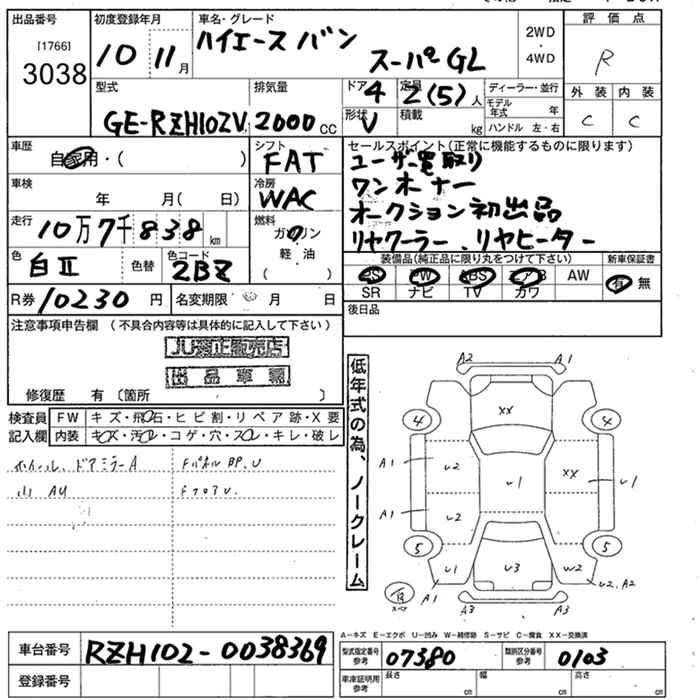 出品番号 初度登録年月 車名・グレード 評価点
[1766] 3038 10 11月 ハイエース バン スーパーGL 2WD・4WD R
型式 排気量 ドア 定員 ディーラー・並行 外装 内装
GE-RZH102V 2000cc 4 2(5)人 モデル年式 年 C C
形状 V 積載 kg ハンドル 左・右
車歴 シフト セールスポイント(正常に機能するものに限ります)
自家用・( ) FAT ユーザー買取り
車検 冷房 ワンオーナー
年 月( 日) WAC オークション初出品
走行 燃料 リヤクーラー、リヤヒーター
10万7千838km ガソリン 軽油 ( )
色 色替 色コード 装備品(純正品に限り丸をつけて下さい) 新車保証書
白II 2BZ PS PW ABS エアB AW 有 無
SR ナビ TV カワ
R券 10230円 名変期限 月 日 後日品
注意事項申告欄(不具合内容等は具体的に記入して下さい)
出品車輌
修復歴 有〔箇所 〕
低年式の為、ノークレーム
検査員 FW キズ・飛石・ヒビ割・リペア跡・X要
記入欄 内装 キズ・汚レ・コゲ・穴・スレ・キレ・破レ
ホイール、ドアミラーA Fパネル BP、U
山 AU Fフロア U
A2 A1
XX
4 4
A1 U2 U1 XX U1
A1 U2
5 5
U1 U3 W2
A1 U2、A2
A3 A3
A-キズ E-エクボ U-凹み W-補修跡 S-サビ C-腐食 XX-交換済
車台番号 RZH102-0038369 型式指定番号 参考 07380 類別区分番号 参考 0103
登録番号 車庫証明用 参考 長さ cm 幅 cm 高さ cm